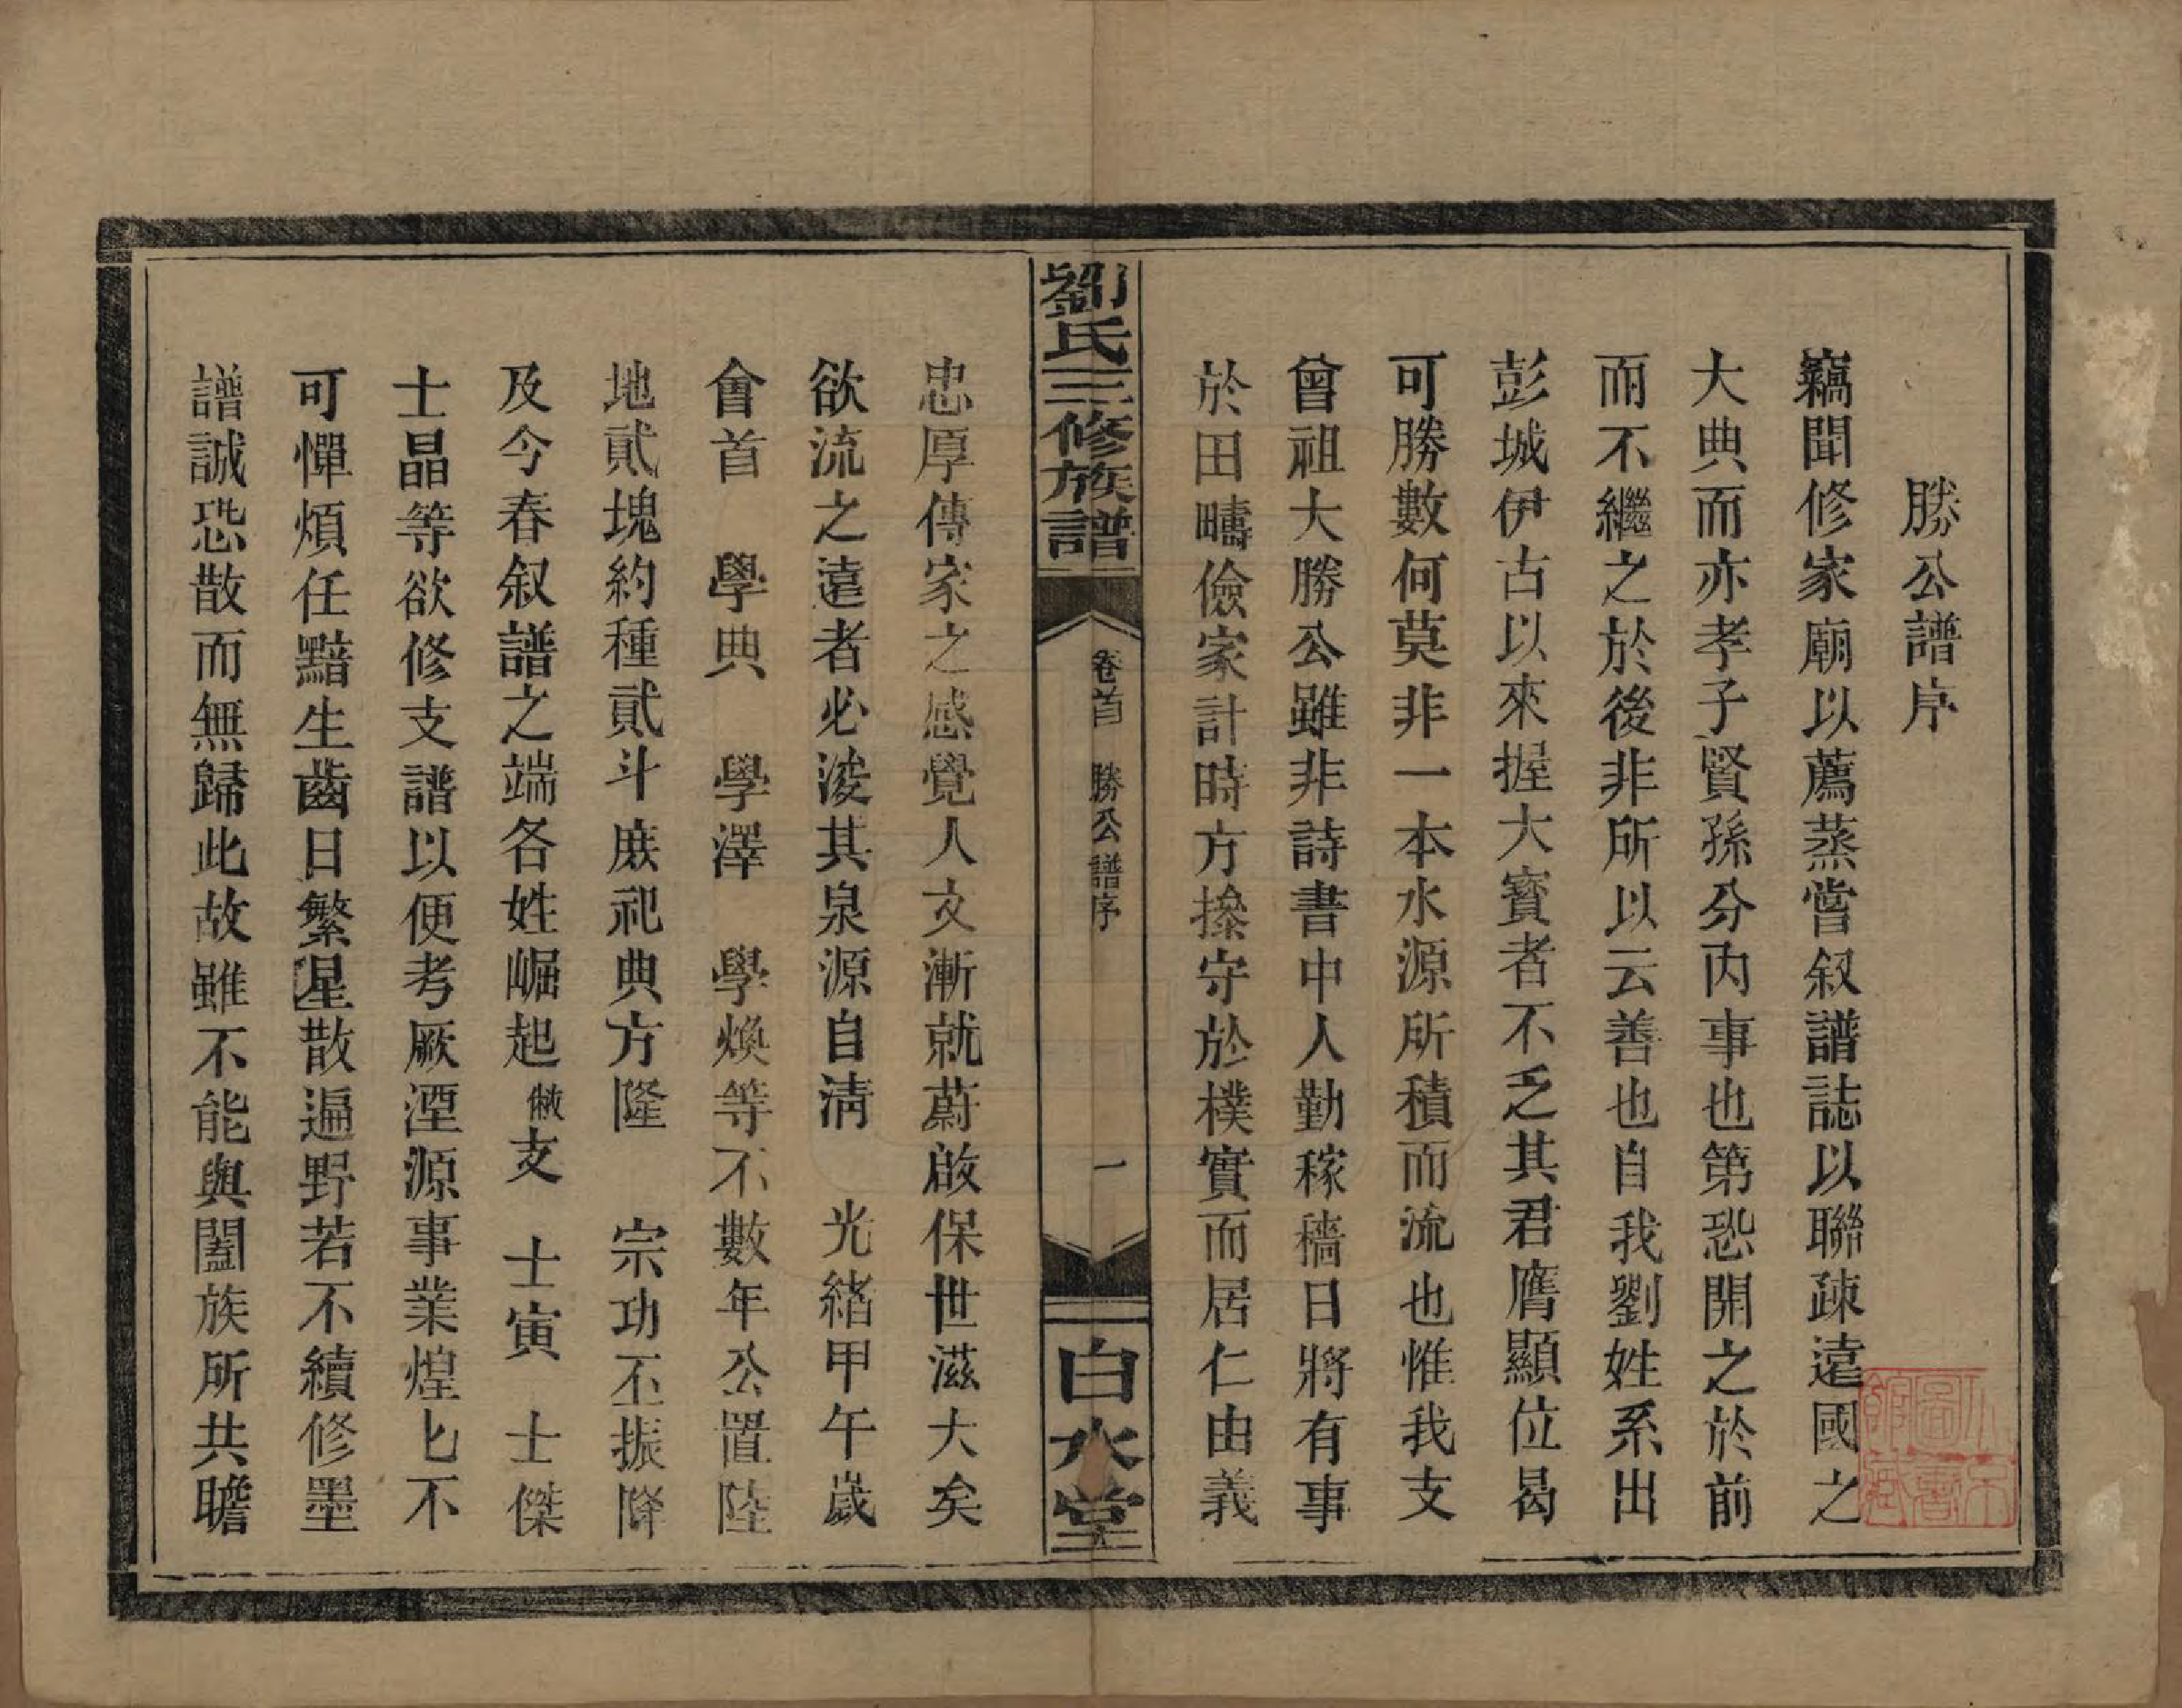 勝公譜序
竊聞修家廟以薦蒸嘗叙譜誌以聯疎遠國之
大典而亦孝子賢孫分内事也第恐開之於前
而不繼之於後非所以云善也自我劉姓系出
彭城伊古以來握大寳者不乏其君膺顯位曷
可勝數何莫非一本水源所積而流也惟我支
曾祖大勝公雖非詩書中人勤稼穡日將有事
於田疇儉家計時方摻守於樸實而居仁由義
劉氏三修族譜
卷首 勝公譜序
一
白水堂
忠厚傳家之感覺人文漸就蔚啟保世滋大矣
欲流之遠者必浚其泉源自淸 光緒甲午歲
會首 學典 學澤 學煥等不數年公置陸
地貳塊約種貳斗庶祀典方隆 宗功丕振降
及今春叙譜之端各姓崛起做支 士寅 士傑
士晶等欲修支譜以便考厥湮源事業煌匕不
可憚煩任黯生齒日繁星散遍野若不續修墨
譜誠恐散而無歸此故雖不能與闔族所共瞻
山西圖書館藏